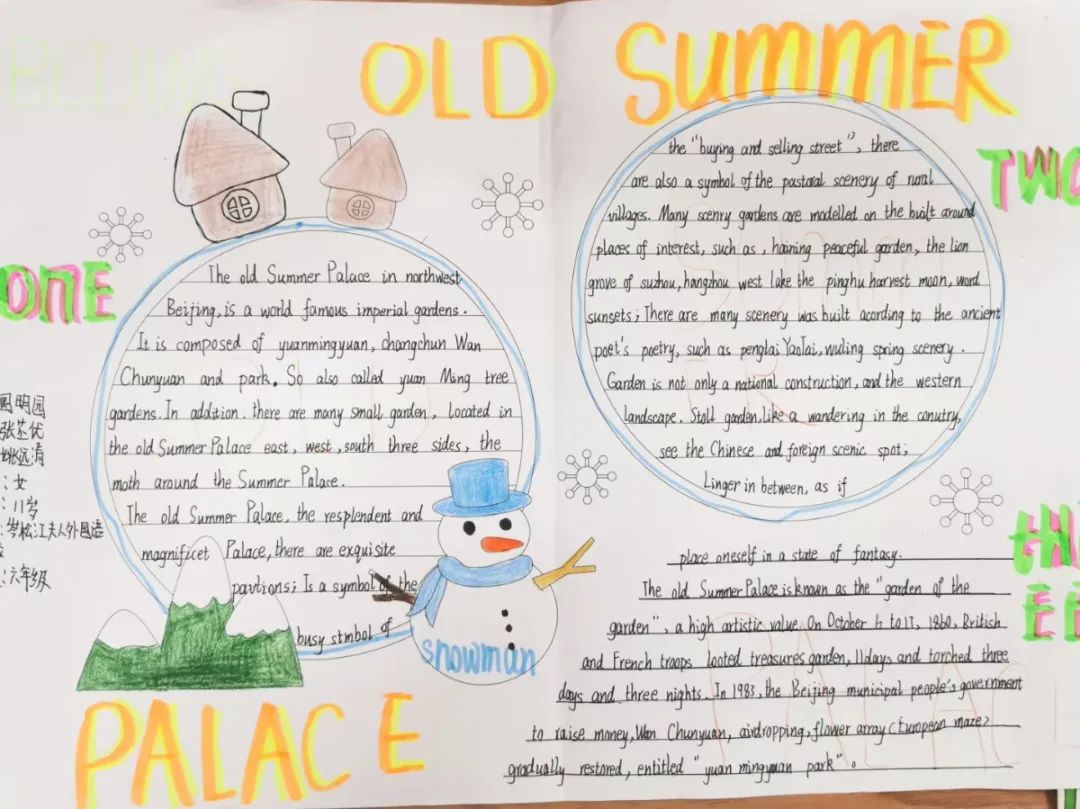 BEIJING
OLD SUMMER
ONE
The old Summer Palace in northwest
Beijing, is a world famous imperial gardens.
It is composed of yuanmingyuan, changchun Wan
Chunyuan and park. So also called yuan Ming tree
gardens. In addition. there are many small garden, Located in
the old Summer Palace east, west, south three sides, the
moth around the Summer Palace.
The old Summer Palace, the resplendent and
magnificet Palace, there are exquisite
pavtions; Is a symbol of the
busy stmbol of
圆明园
张芷优
姚远清
:女
:11岁
:岑松江夫人外国语
:六年级
snowman
PALACE
TWO
the "buying and selling street", there
are also a symbol of the pastoral scenery of rural
villages. Many scenry gardens are modelled on the built around
places of interest, such as, haining peaceful garden, the lion
grove of suzhou, hangzhou west lake the pinghu harvest moon, word
sunsets; There are many scenery was built acording to the ancient
poet's poetry, such as penglai YaoTai, wuling spring scenery.
Garden is not only a national construction, and the western
landscape. Stoll garden, like a wandering in the conutry,
see the Chinese and foreign scenic spot;
Linger in between, as if
THREE
place oneself in a state of fantasy.
The old Summer Palace is known as the "garden of the
garden", a high artistic value. On October 6 to 17, 1860, British
and French troops looted treasures garden, 11days and torched three
days and three nights. In 1983, the Beijing municipal people's government
to raise money, Wan Chunyuan, airdropping, flower array (European maze)
gradually restored, entitled "yuan mingyuan park"。